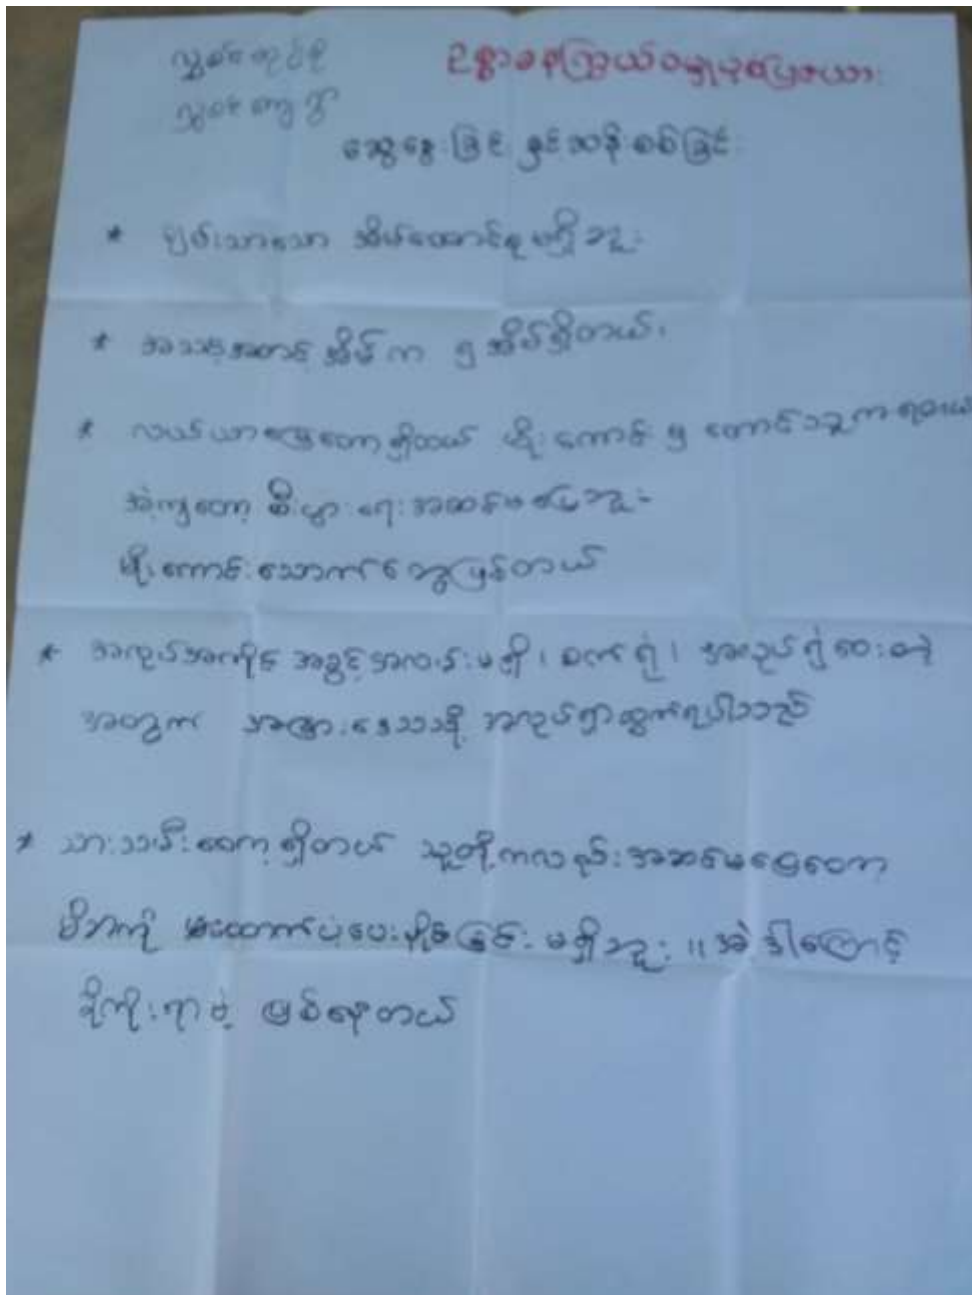 လွှမ်းတိုင်စု
လွှမ်းကျေးရွာ
ဥစ္စာဓနကြွယ်ဝမှုပုံပြဇယား
ဆွေးနွေးခြင်း နှင့်ဆန်းစစ်ခြင်း
* ချမ်းသာသော အိမ်ထောင်စု မရှိဘူး
* အသင့်အတင့် အိမ်က ၅ အိမ်ရှိတယ်၊
* လယ်ယာမြေတော့ရှိတယ် မိုးကောင်း ၅ တောင်းသူကရတယ်
အဲ့ကျတော့ စီးပွားရေးအဆင်မပြေဘူး
မိုးကောင်းသောက်ရေ
* အလုပ်အကိုင် အခွင့်အလမ်းမရှိ၊ စက်ရုံ၊ အလုပ်ရုံဝေးတဲ့
အတွက် အခြားဒေသသို့ အလုပ်ရှာထွက်ရပါသည်
* သားသမီးတော့ရှိတယ် သူတို့ကလည်းအဆင်မပြေတော့
မိဘကို ထောက်ပံ့ပေးနိုင်ခြင်း မရှိဘူး ။အဲဒါကြောင့်
ခိုကိုးရာမဲ့ ဖြစ်နေတယ်